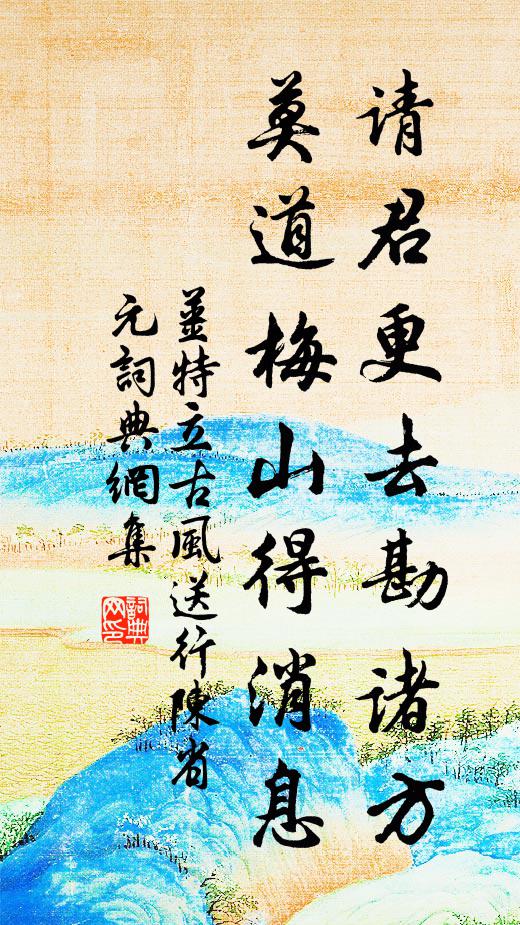 请君更去勘诸方
莫道梅山得消息
姜特立古風送行陳省
元詞典網集
詞典网印